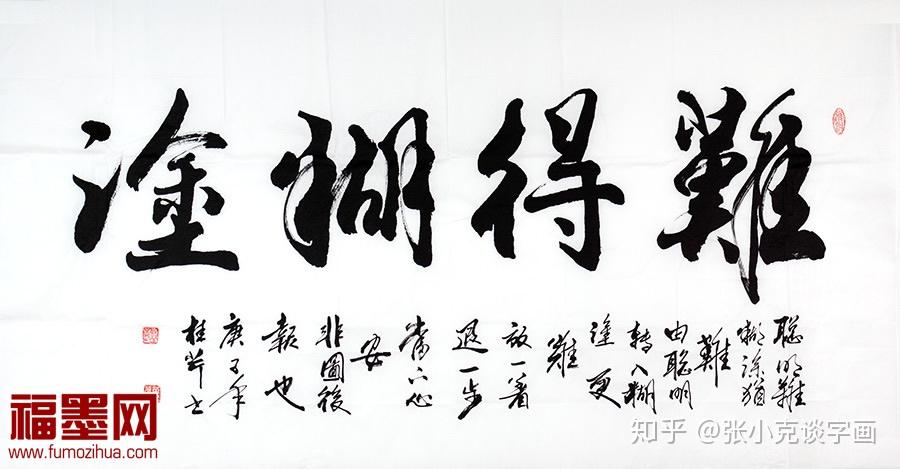 難得糊塗
聪明難
糊涂猶
難
由聪明
转入糊
塗更
難
放一著
退一步
當下心
安
非圖後
報也
庚子年
桂芹书
福墨网
www.fumozihua.com
知乎 @张小克谈字画